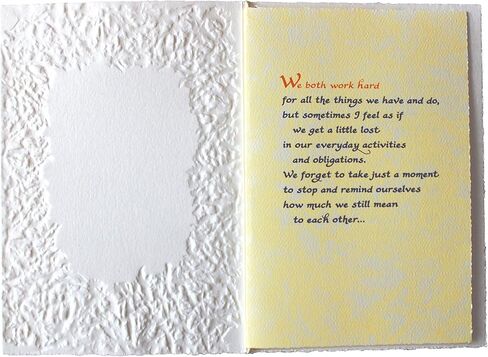 We both work hard
for all the things we have and do,
but sometimes I feel as if
we get a little lost
in our everyday activities
and obligations.
We forget to take just a moment
to stop and remind ourselves
how much we still mean
to each other...